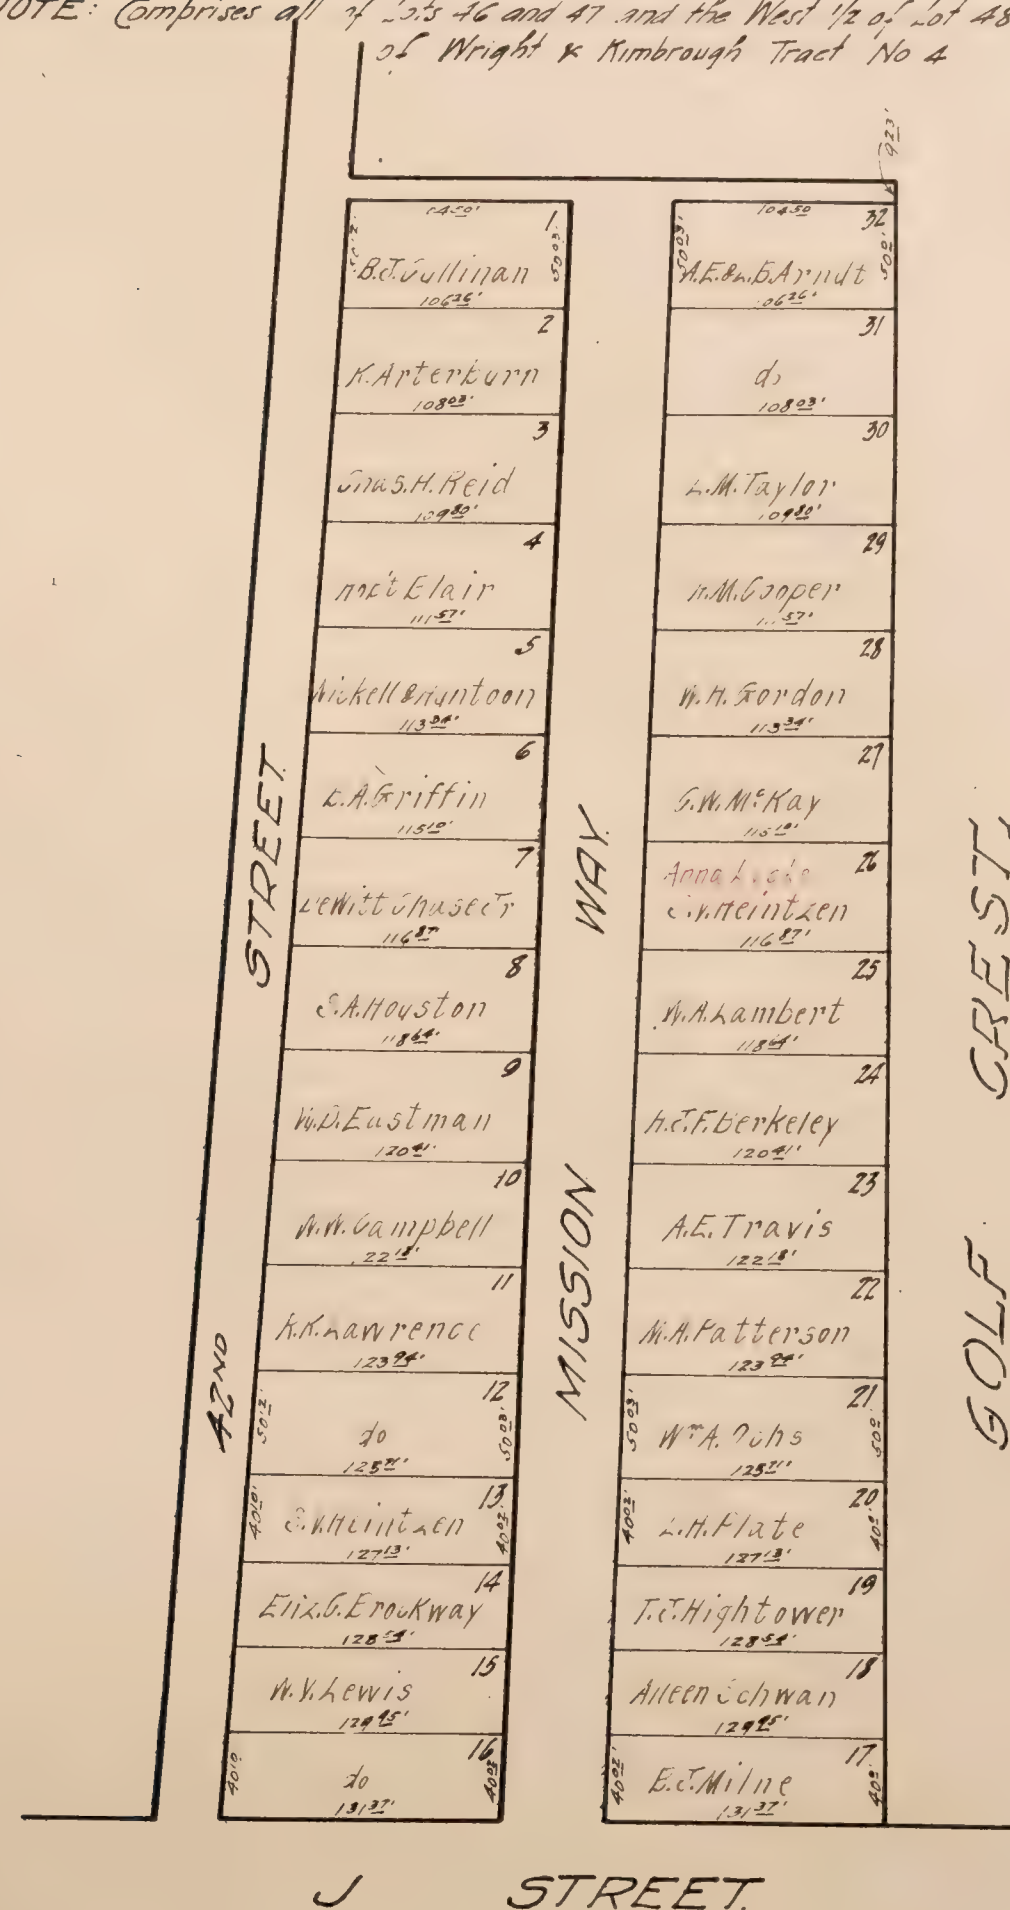 NOTE: Comprises all of Lots 46 and 47 and the West 1/2 of Lot 48
of Wright & Kimbrough Tract No 4
923'
10450'
1
5012'
5003'
B.J. Cullinan
10626'
2
K. Arterburn
10803'
3
Chas. H. Reid
10980'
4
Elair
11157'
5
Nickell & Huntoon
11334'
6
E.A. Griffin
11510'
7
DeWitt Chase Jr
11687'
8
S.A. Houston
11864'
9
W.D. Eastman
12041'
10
W.W. Campbell
2218'
11
K.K. Lawrence
12394'
12
5012'
5003'
do
12571'
13
4010'
4002'
S.V. Heintzen
12713'
14
Eliz. G. Erockway
12854'
15
W.V. Lewis
12995'
16
4010
4002
do
13137'
32
10450
5003'
500'
A.E. & L.B. Arndt
0626'
31
do
10803'
30
L.M. Taylor
10980'
29
M. Cooper
57'
28
W.H. Gordon
11334'
27
G.W. McKay
11510'
26
Anna
S.V. Heintzen
11687'
25
W.A. Lambert
11864'
24
H.J.F. Berkeley
12041'
23
A.E. Travis
12218'
22
M.A. Patterson
12394'
21
5003'
500
Wm A.
12571'
20
4002'
400'
L.H. Plate
12713'
19
T.J. Hightower
12854'
18
Aileen Schwan
12995'
17
4002'
400'
E.J. Milne
13137'
42ND STREET.
MISSION WAY.
GOLF CREST.
J STREET.